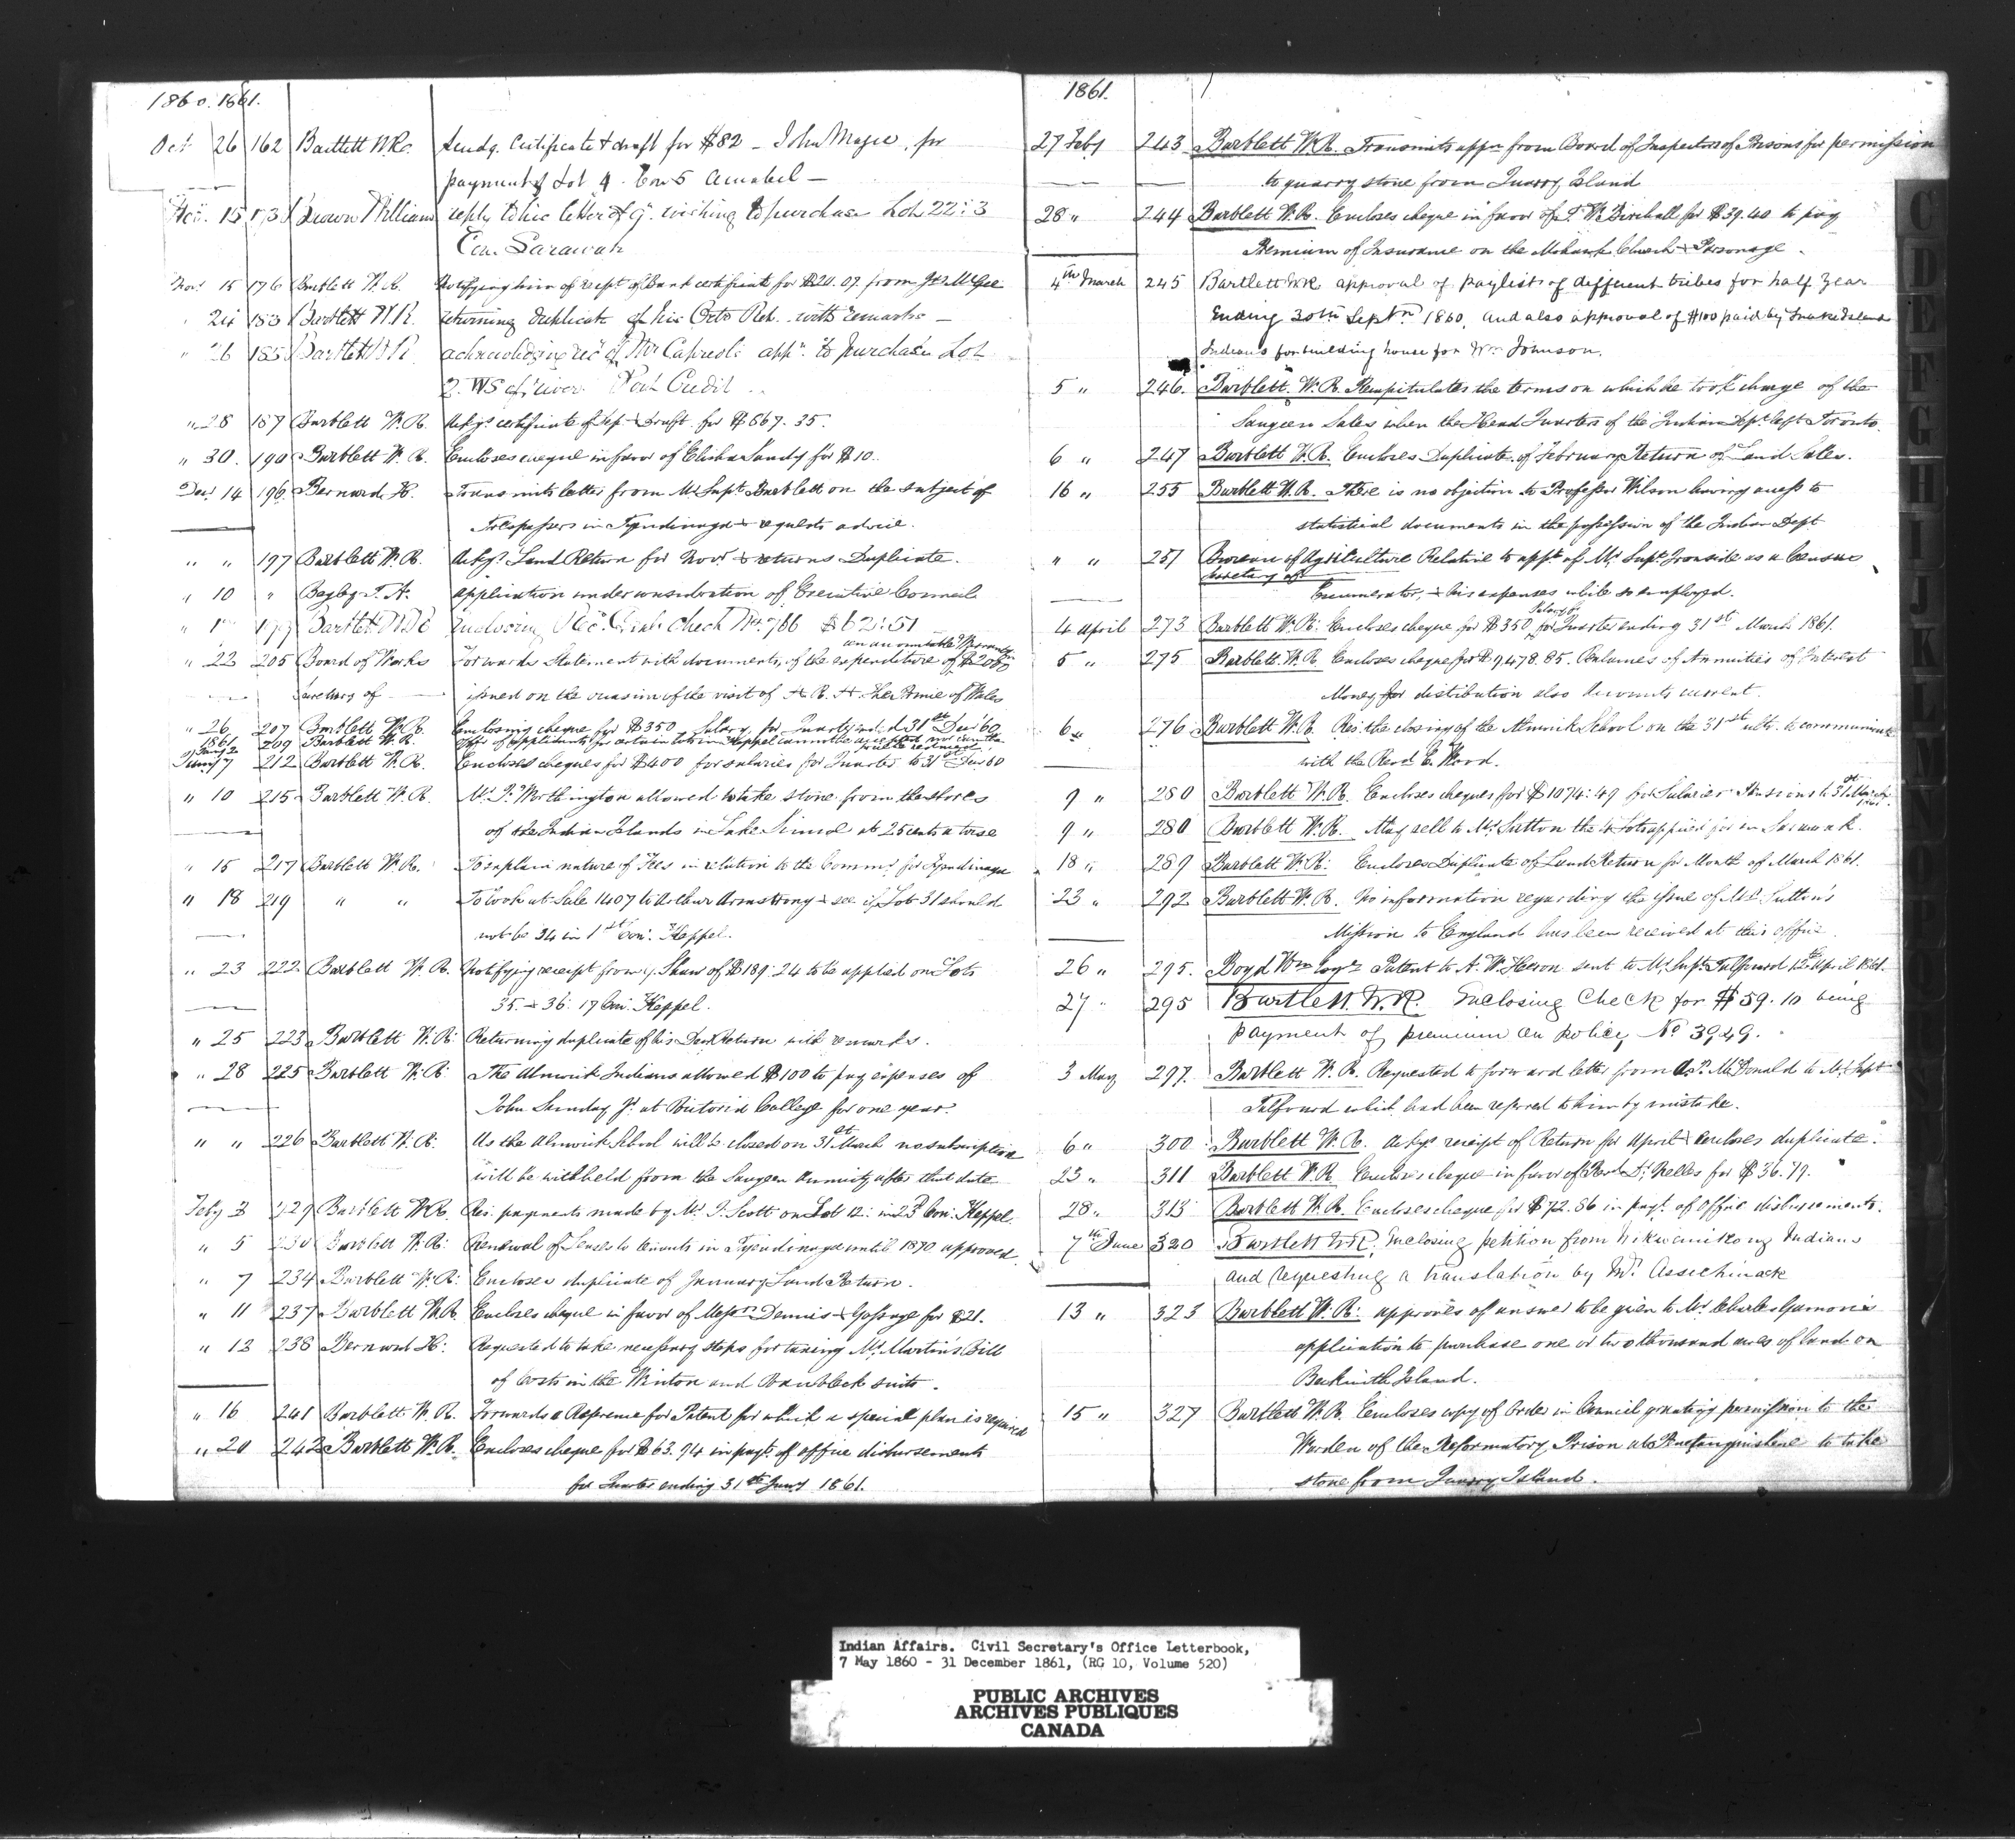 1860. 1861.
Oct 26 162 Bartlett W.R. Sendg. Certificate & draft for $82 - John Magee, for
payment of Lot 4. Con 5 Amabel -
Nov. 15 173 Brown William reply to his letter of 9" wishing to purchase Lots 22: 3
Con. Sarawak
Nov. 15 176 Bartlett W.R. Notifying him of rect. of Bank certificate for $20.07 from Jas McGee
" 24 183 Bartlett W.R. returning Duplicate of his Octr. Ret. with remarks -
" 26 185 Bartlett W.R. acknowledging rec. of Mr appn. to purchase Lot
2. WS of river Port Credit
" 28 187 Bartlett W.R. Ackgs certificate of Dep. & Draft for $667.35.
" 30. 190 Bartlett W.R. Encloses cheque in favor of Elisha Sandy for $10.
Decr 14 196 Bernard H. Transmits letter from Mr Supt. Bartlett on the subject of
Trespassers in Tyendinaga & requests advice.
" " 197 Bartlett W.R. Ackgs. Land Return for Novr. & returns Duplicate.
" 10 " Begley T.A. Application under consideration of Executive Council
" 199 Bartlett W.R. Enclosing Rec. Genl. Check No. 766 $62:51
an accountable Warrant
" 22 205 Board of Works Forwards Statement with documents, of the expenditure of
Secretary of issued on the occasion of the visit of H.R.H. the Prince of Wales
" 26 207 Bartlett W.R. Enclosing cheque for $350 Salary for Quarter ended 31st Decr '60
1861 Jany 2 209 Bartlett W.R. Offer of applicants for certain lots in Keppel cannot be accepted nor can the
price be reduced.
Jany 7 212 Bartlett W.R. Encloses cheques for $400 for salaries for Quarter to 31st Dec 60
" 10 215 Bartlett W.R. Mr. J. Worthington allowed to take stone from the shores
of the Indian Islands in Lake Simcoe at 25 cents a toise
" 15 217 Bartlett W.R. To explain nature of Fees in relation to the Commn. for Tyendinaga
" 18 219 " " To look at Sale 1407 to Arthur Armstrong & see if Lot 31 should
not be 34 in 1st Con. Keppel.
" 23 222 Bartlett W.R. Notifying receipt from J. Shaw of $189:24 to be applied on Lots
35 & 36: 17 Con. Keppel.
" 25 223 Bartlett W.R: Returning duplicate of his Decr Return with remarks.
" 28 225 Bartlett W.R: The Alnwick Indians allowed $100 to pay expenses of
John Sunday Jr. at Victoria College for one year.
" " 226 Bartlett W.R: As the Alnwick School will be closed on 31st March no subscription
will be withheld from the Saugeen Annuity after that date
Feby 2 229 Bartlett W.R. Res. payments made by Mr. J. Scott on Lot 12: in 23d Con. Keppel.
" 5 230 Bartlett W.R: Renewal of Leases to tenants in Tyendinaga until 1870 approved
" 7 234 Bartlett W.R: Encloses duplicate of January Land Return.
" 11 237 Bartlett W.R. Encloses cheque in favor of Messrs Dennis & Gossage for $21.
" 12 238 Bernard H: Requested to take necessary steps for taxing Mr. Martin's Bill
of costs in the Winton and suits.
" 16 241 Bartlett W.R. Forwards a Reference for Patent for which a special plan is required
" 20 242 Bartlett W.R. Encloses cheque for $63.94 in payt. of office disbursements
for Quarter ending 31st Jany 1861.
1861.
27 Feby 243 Bartlett W.R. Transmits appn from Board of Inspectors of Prisons for permission
to quarry stone from Quarry Island
28 " 244 Bartlett W.R. Encloses cheque in favor of T.W. Birchall for $39.40 to pay
Premium of Insurance on the Mohawk Church & Parsonage.
4th March 245 Bartlett W.R. approval of paylists of different tribes for half year
ending 30th Septr 1860, and also approval of $100 paid by Snake Island
Indians for building house for Wm Johnson.
5 " 246. Bartlett. W.R. Recapitulates the terms on which he took charge of the
Saugeen Sales when the Head Quarters of the Indian Dept. left Toronto.
6 " 247 Bartlett W.R. Encloses Duplicate of February Return of Land Sales.
16 " 255 Bartlett W.R. There is no objection to Professor Wilson having access to
statistical documents in the possession of the Indian Dept
" " 257 Bureau of Agriculture Relative to appt. of Mr. Supt. Ironside as a Census
Secretary of
Enumerator, & his expenses while so employed.
4 April 273 Bartlett W.R: Encloses cheque for $350 Salary for Quarter ending 31st March 1861.
5 " 275 Bartlett W.R. Encloses cheque for $9,478.85. Balances of Annuities of Interest
Money for distribution also Accounts current.
6 " 276 Bartlett W.R. Res. the closing of the Alnwick School on the 31st ulto. to communicate
with the Revd E. Wood.
9 " 280 Bartlett W.R. Encloses cheques for $1074:49 for Salaries & Pensions to 31st March 1861.
9 " 280 Bartlett W.R. May sell to Mr. Sutton the 4 Lots applied for in Sarawak.
18 " 289 Bartlett W.R: Encloses Duplicate of Land Return for Month of March 1861.
23 " 292 Bartlett W.R. No information regarding the issue of Mrs. Sutton's
Mission to England has been received at this office
26 " 295. Boyd Wm Esqre Patent to A.W. Heron sent to Mr Supt. Talfourd 12th April 1861.
27 " 295 Bartlett. W.R. Enclosing Check for $59.10 being
payment of premium on policy No 3949.
3 May 297. Bartlett W.R. Requested to forward letter from A.P. McDonald to Mr. Supt
Talfourd which had been referred to him by mistake.
6 " 300 Bartlett W.R. Ackgs receipt of Return for April & encloses duplicate.
23 " 311 Bartlett W.R. Encloses cheque in favor of Revd Dr. Nelles for $36.79.
28 " 313 Bartlett W.R. Encloses cheque for $72.86 in payt. of office disbursements.
7th June 320 Bartlett W.R. Enclosing petition from Wikwemikong Indians
and requesting a translation by Mr. Assichinack
13 " 323 Bartlett W.R: approves of answer to be given to Mr. Charles Gamon's
application to purchase one or two thousand acres of land on
Beckwith Island.
15 " 327 Bartlett W.R. Encloses copy of Order in Council granting permission to the
Warden of the Reformatory Prison at Penetanguishene to take
stone from Quarry Island.
C
D
E
F
G
H
I
J
K
L
M
N
Indian Affairs. Civil Secretary's Office Letterbook,
7 May 1860 - 31 December 1861, (RG 10, Volume 520)
PUBLIC ARCHIVES
ARCHIVES PUBLIQUES
CANADA